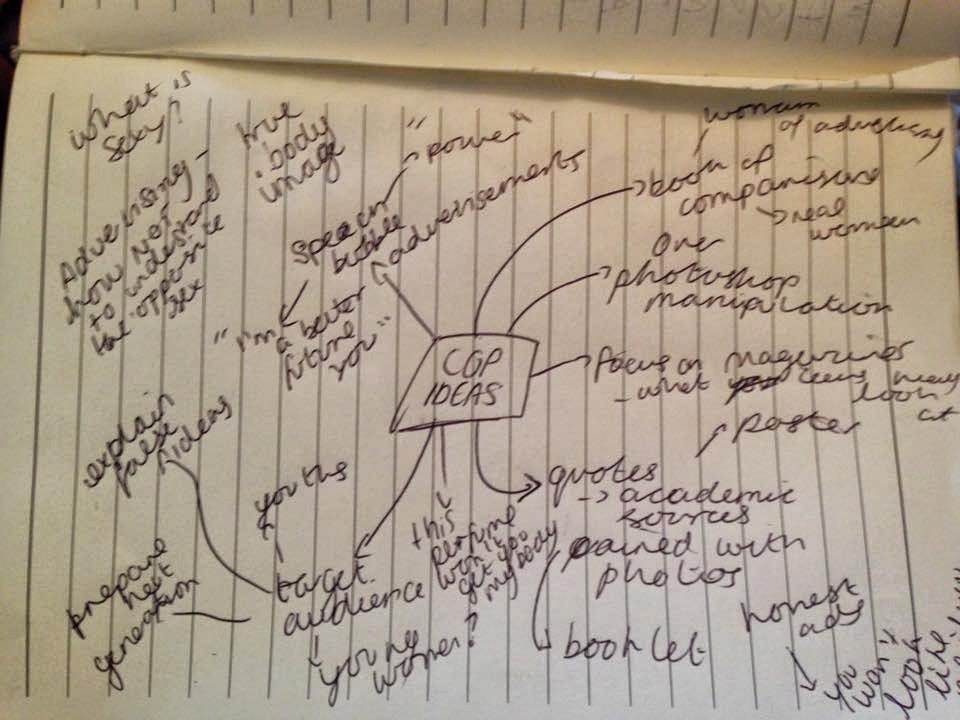 What is
Sexy?
true
body
image
Advertising -
how not
to understand
the opposite
sex
"power"
Speech
bubble
advertisements
"I'm
a better
future
you"
woman
of advertising
book of
comparisons
real
women
over
photoshop
manipulation
CGP
IDEAS
Focus on magazines
- what teens may
look
at
poster
quotes
-> academic
sources
pained with
photos
booklet
honest
ads
"you
won't
look
like
this
perfume
won't
get you
my body
explain
false
ideas
youths
target
audience
prepare
next
generation
young
women?